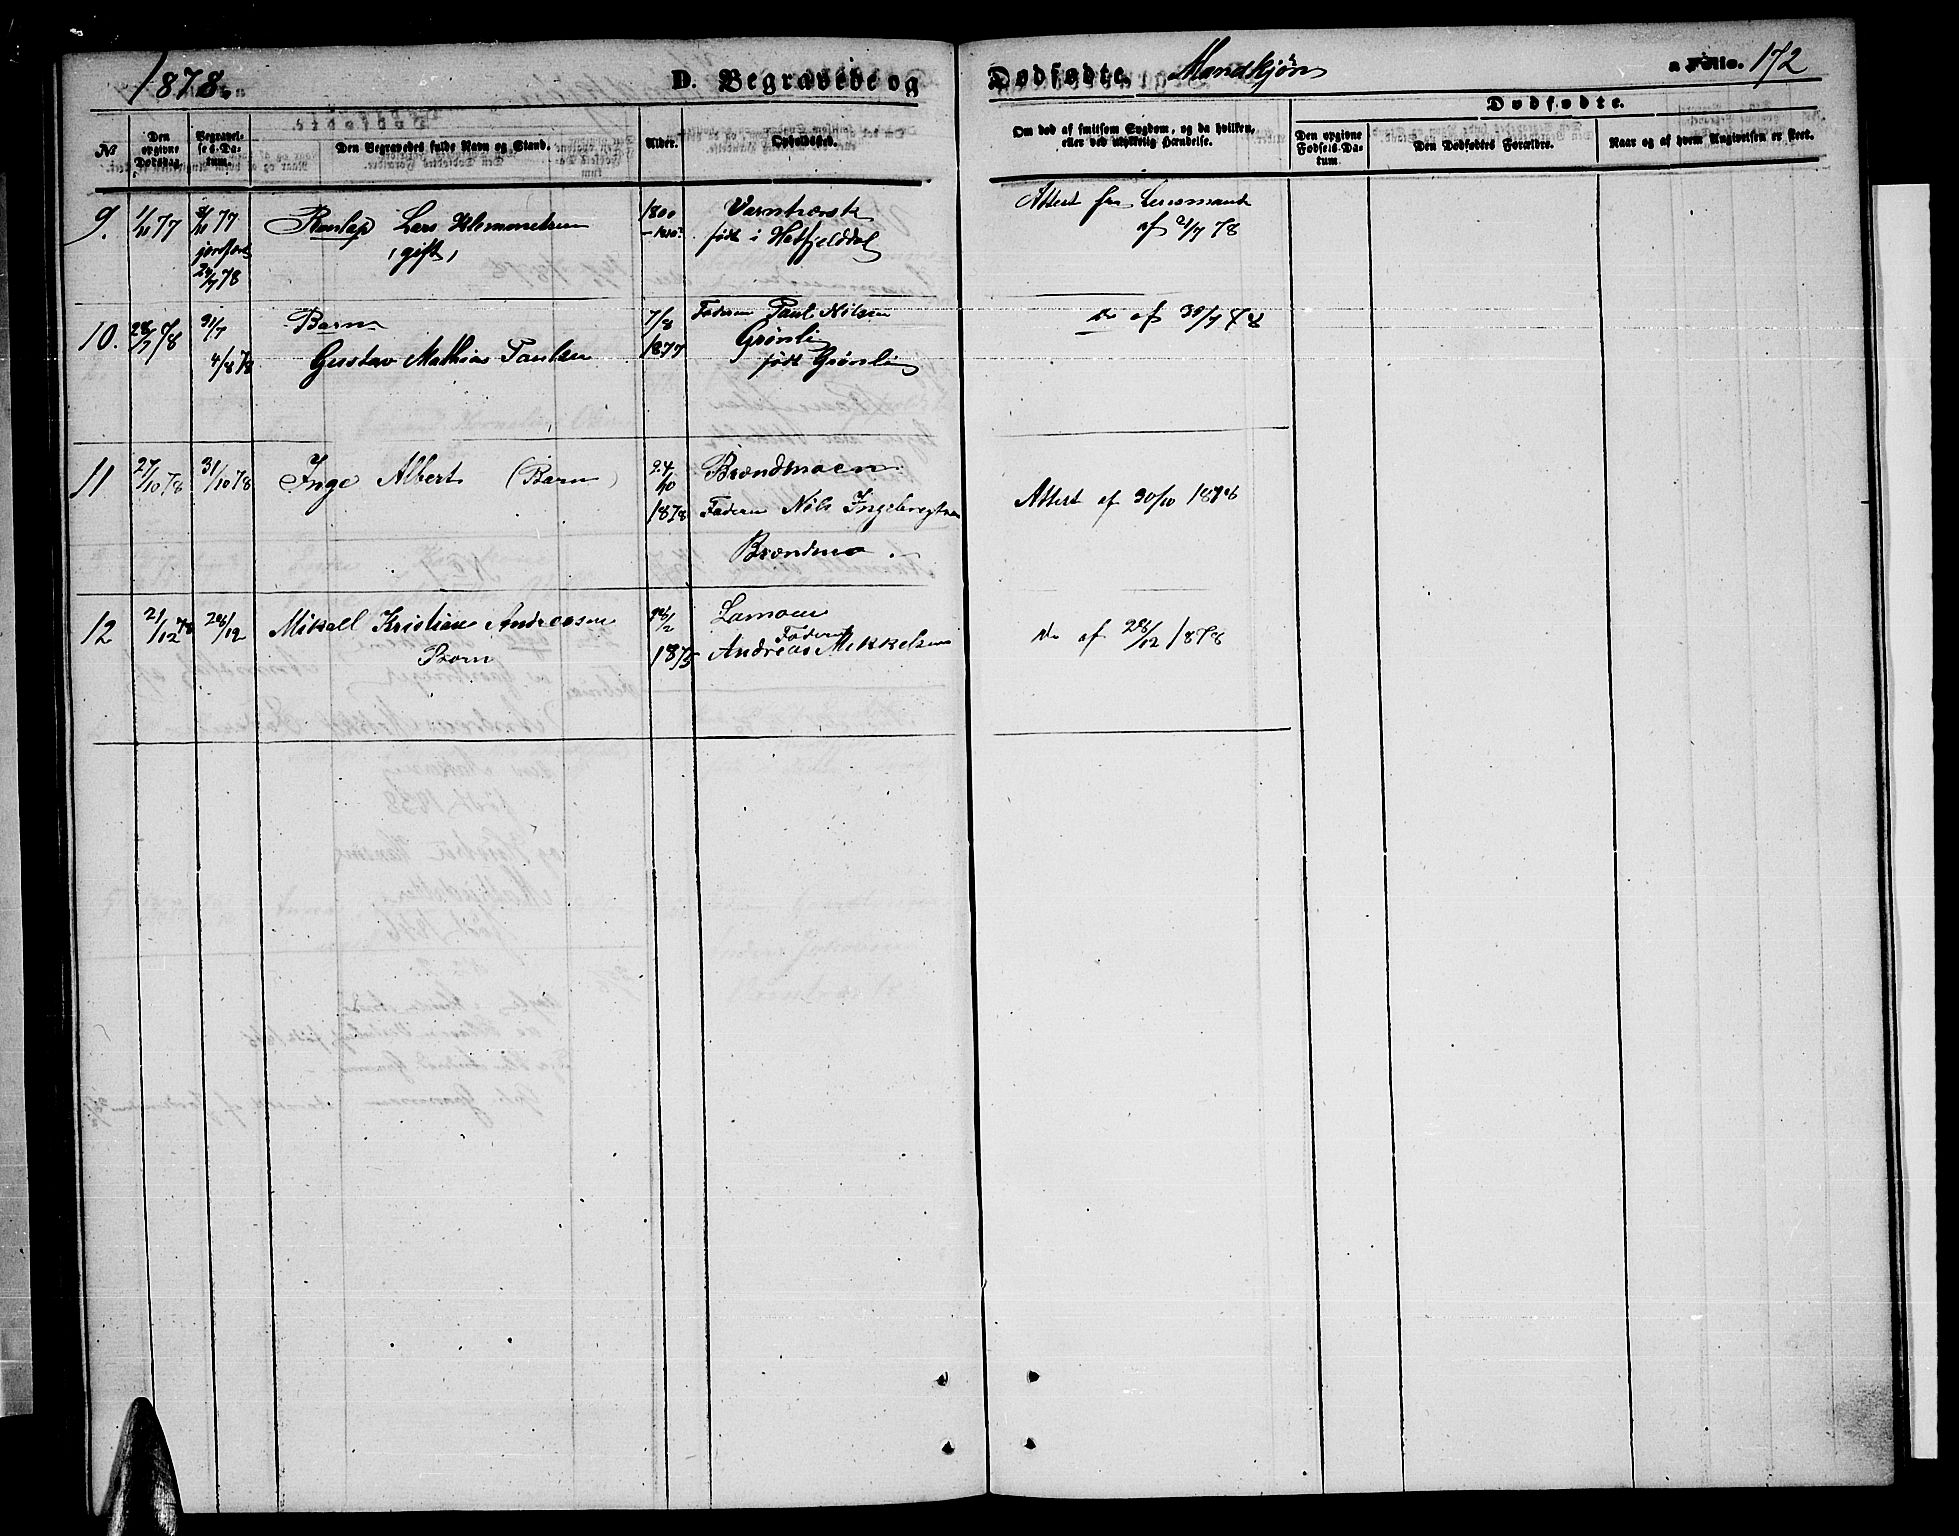 1878.
D. Begravede og Dødfødte. Mandkjøn
a Folio. 172
Dødfødte.
No
Den opgivne Dødsdag.
Begravelses-Datum.
Den Begravedes fulde Navn og Stand.
Alder.
Opholdssted.
Om død af smitsom Sygdom, og da hvilken, eller ved ulykkelig Hændelse.
Den opgivne Fødsels-Datum.
Den Dødfødtes Forældre.
Naar og af hvem Angivelsen er skeet.
9. 77 77 Lars Klemmetsen 1800 Varntræsk Attest fra Lensmand
jordfæst (gift) født i Hatfjelddal af 21/7 78
78
10. 28/7 78 31/7 Barn 7/8 Faderen Paul Nilsen Do af 30/7 78
4/8 78 Gustav Mathias Paulsen 1877 Grønli
født Grønli
11 27/10 78 31/10 78 Inge Albert (Barn) 24/10 Brændmoen
1878 Faderen Nils Ingebregtsen Attest af 30/10 1878
Brændmo
12 21/12 78 28/12 Mikael Kristian Andreasen /2 Lamoen
Barn 1875 Faderen Andreas Mikkelsen Do af 28/12 1878